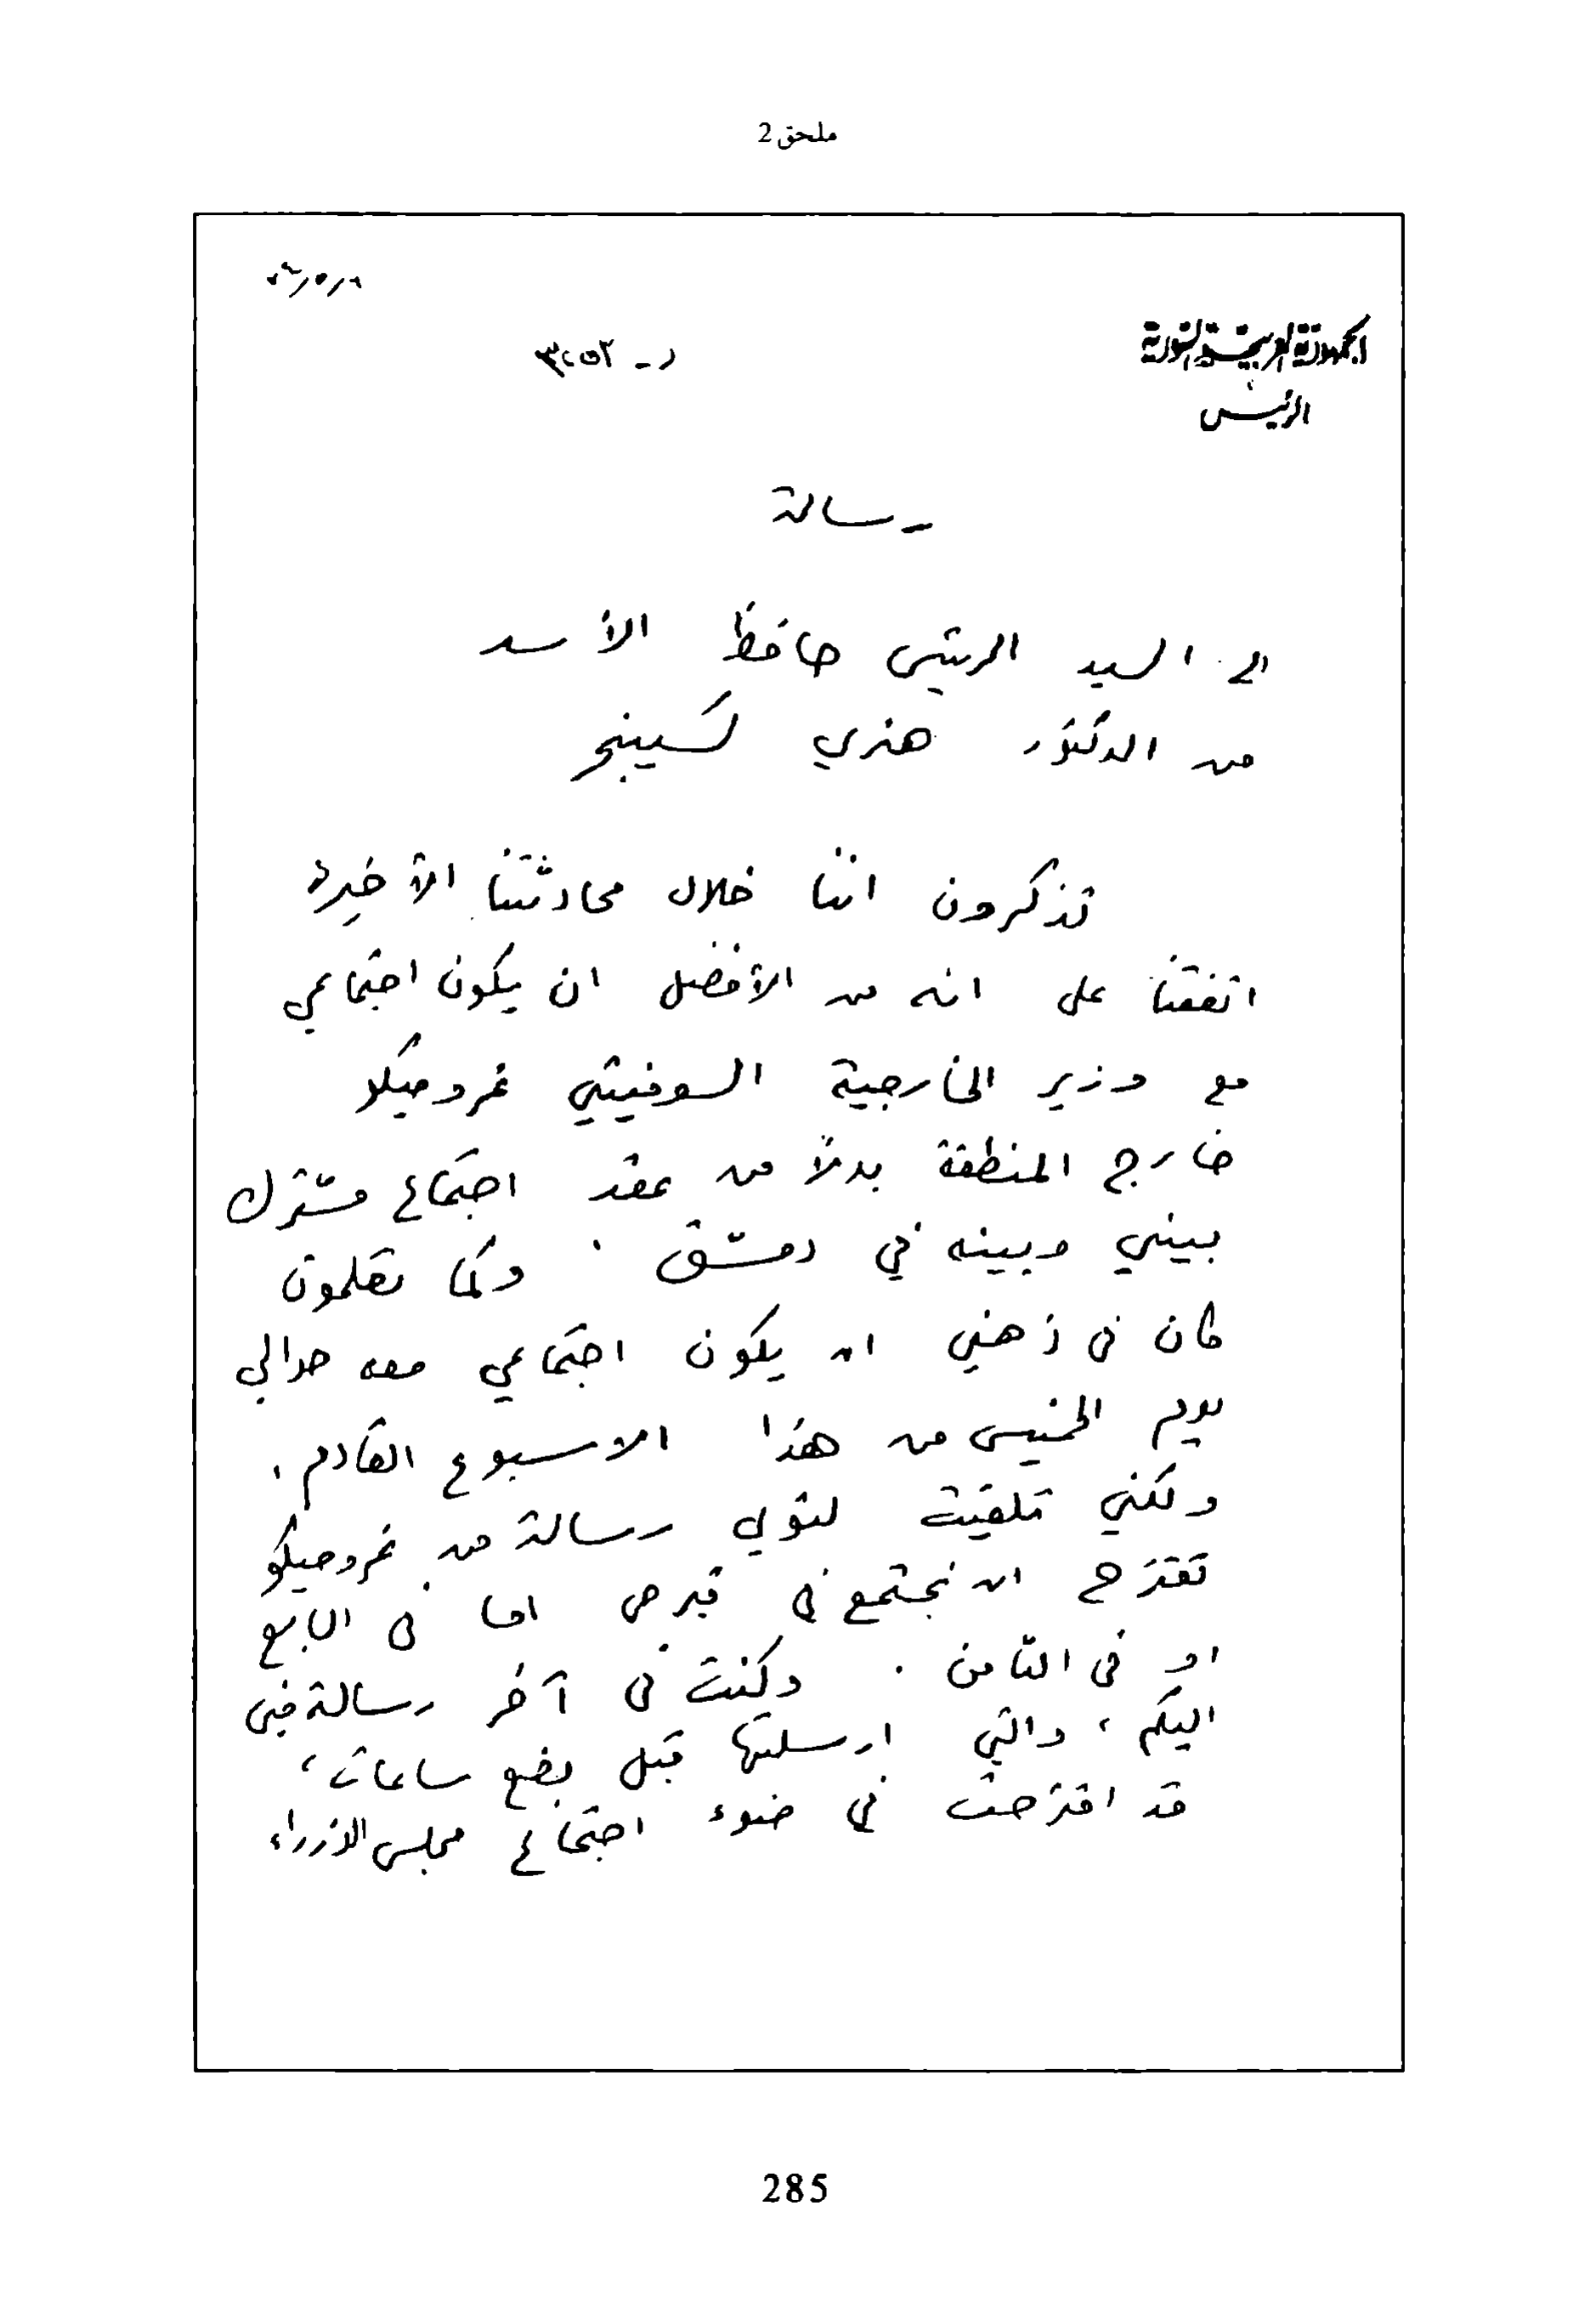 ملحق 2
الجمهورية العربية السورية
الرئيس
رسالة
الى السيد الرئيس حافظ الأسد
من الدكتور هنري كسينجر
تذكرون اننا خلال محادثتنا الأخيرة
اتفقنا على انه من الأفضل ان يكون اجتماعي
مع وزير الخارجية السوفيتي غروميكو
خارج المنطقة بدلاً من عقد اجتماع مشترك
بيني وبينه في دمشق . وكما تعلمون
كان في ذهني ان يكون اجتماعي معه حوالي
يوم الخميس من هذا الاسبوع القادم .
ولكني تلقيت لتوي رسالة من غروميكو
تقترح ان نجتمع في قبرص اما في السابع
او في الثامن . وكنت في آخر رسالة مني
اليكم ، والتي ارسلتها قبل بضع ساعات ،
قد اقترحت في ضوء اجتماع مجلس الوزراء
285